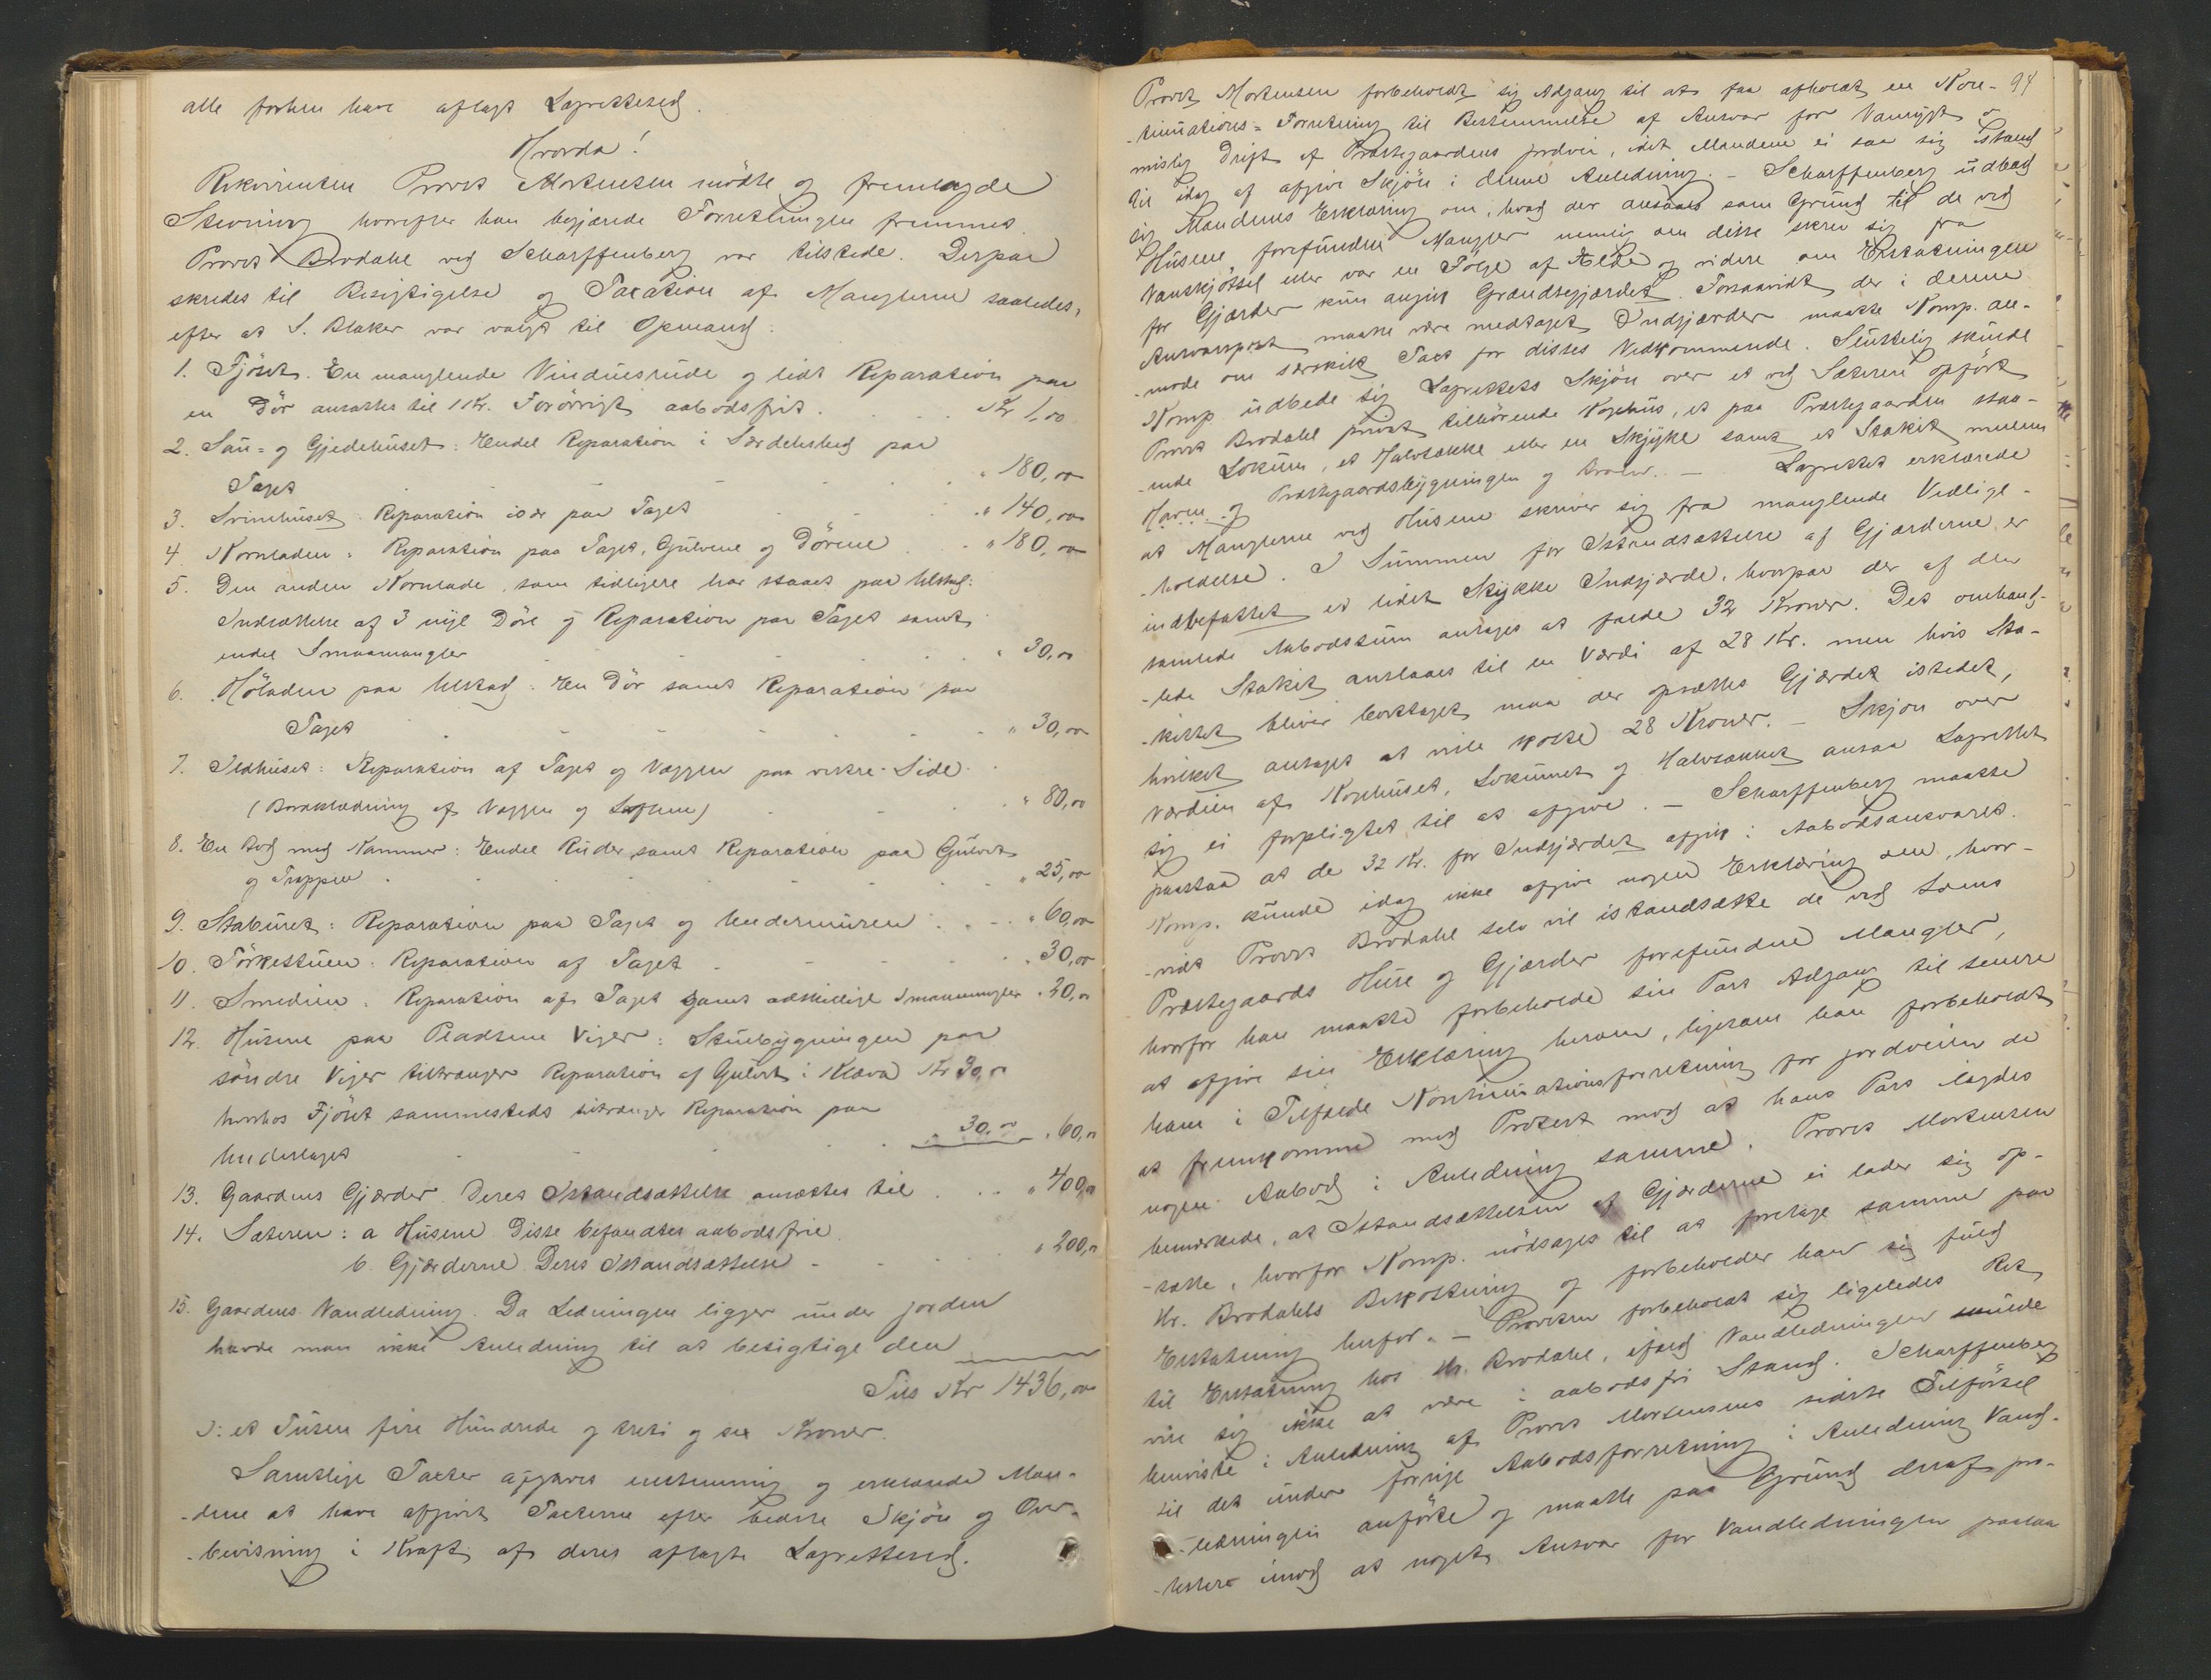 alle forhen have aflagt Lagrettesed.
Hvorda!
Rekvirenten Provst Mortensen mödte og fremlagde
Stevning hvorefter han begjærede Forretningen fremmet.
Provst Brodahl ved Scharffenberg var tilstede. Derpaa
skredes til Besigtigelse og Taxation af Manglerne saaledes,
efter at S. Blaker var valgt til Opmand:
1. Fjöset. En manglende Vinduesrude og lidt Reparation paa
en Dör ansattes til 1 Kr. Forövrigt aabodsfrit . . . Kr 1,00
2. Sau- og Gjedehuset: Endel Reparation i Særdeleshed paa
Taget . . . " 180,00
3. Svinehuset. Reparation især paa Taget . . . " 140,00
4. Kornladen: Reparation paa Taget, Gulvene og Dörene . . . " 180,00
5. Den anden Kornlade, som tidligere har staaet paa Ulstad:
Indsættelse af 3 nye Döre og Reparation paa Taget samt
endel Smaamangler . . . " 30,00
6. Höladen paa Ulstad: En Dör samt Reparation paa
Taget . . . " 30,00
7. Ildhuset: Reparation af Taget og Væggen paa vestre Side
(Bordklædning af Væggen og ) . . . " 80,00
8. En Bod med Kammer: Endel Ruder samt Reparation paa Gulvet
og Trappen . . . " 25,00
9. Staburet: Reparation paa Taget og Undermuren . . . " 60,00
10. Törkestuen: Reparation af Taget . . . " 30,00
11. Smedien: Reparation af Taget samt adskillige Smaamangler " 20,00
12. Husene paa Pladsene Viger: Stuebygningen paa
söndre Viger tiltrænger Reparation af Gulvet i Kleva Kr 30,00
hvorhos Fjöset sammesteds tiltrænger Reparation paa
Underlaget . . . " 30,00 " 60,00
13. Gaardens Gjærder. Deres Istandsættelse ansættes til . . . " 400,00
14. Sæteren: a Husene. Disse befandtes aabodsfrie.
b. Gjærderne. Deres Istandsættelse . . . " 200,00
15. Gaardens Vandledning. Da Ledningen ligger under Jorden
havde man ikke Anledning til at besigtige den
Tils Kr 1436,00
ɔ: et Tusen fire Hundrede og treti og sex Kroner.
Samtlige Taxter afgaves enstemmig og erklærede Mæn-
-dene at have afgivet Taxterne efter bedste Skjön og Over-
-bevisning i Kraft af deres aflagte Lagrettesed.
Provst Mortensen forbeholdt sig Adgang til at faa afholdt en Kon- 94
-tinuations-Forretning til Bestemmelse af Ansvar for Vanrygt o
mislig Drift af Præstegaardens Jordvei, idet Mændene ei saa sig istand
til idag af afgive Skjön i denne Anledning. – Scharffenberg udbad
sig Mændenes Erklæring om, hvad der ansaaes som Grund til de ved
Husene forefundne Mangler nemlig om disse skrev sig fra
Vanskjötsel eller var en Fölge af Ælde og videre om Erstatningen
for Gjærder kun angik Grændsegjærdet. Forsaavidt der i denne
Ansvarspost maatte være medtaget Indgjærder maatte Komp. an-
-mode om særskilt Taxt for disses Vedkommende. Sluttelig skulde
Komp. udbede sig Lagrettets Skjön over et ved Sæteren opfört
Provst Brodahl privat tilhörende Kogehus, et paa Præstegaarden staa-
-ende Lokum, et Halvtække eller en Skjykke samt et Stakit mellem
Haven og Præstegaardsbygningen og . – Lagrettet erklærede
at Manglerne ved Husene skriver sig fra manglende Vedlige-
-holdelse. I Summen for Istandsættelse af Gjærderne er
indbefattet et lidet Stykke Indgjærde, hvorpaa der af den
samlede Aabodssum antages at falde 32 Kroner. Det omhand-
-lede Stakit anslaaes til en Værdi af 28 Kr. men hvis Sta-
-kittet bliver borttaget maa der opsættes Gjærdet istedet,
hvilket antages at ville koste 28 Kroner. – Skjön over
Værdien af Kogehuset, Lokumet og Halvtækket ansaa Lagrettet
sig ei forpligtet til at afgive. – Scharffenberg maatte
paastaa at de 32 Kr. for Indgjærdet afgik i Aabodsansvaret.
Komp. kunde idag ikke afgive nogen Erklæring om, hvor-
-vidt Provst Brodahl selv vil istandsætte de ved Loms
Præstegaards Huse og Gjærder forefundne Mangler,
hvorfor han maatte forbeholde sin Part Adgang til senere
at afgive sin Erklæring herom, ligesom han forbeholdt
ham i Tilfælde Kontinuationsforretning for Jordveien de
at fremkomme med Protest mod at hans Part ilagdes
nogen Aabod i Anledning samme. Provst Mortensen
bemærkede, at Istandsættelsen af Gjærderne ei lader sig op-
-sætte, hvorfor Komp. nödsages til at foretage samme paa
Hr. Brodahls Bekostning og forbeholder han sig fuld
Erstatning herfor. – Provsten forbeholdt sig ligeledes Ret
til Erstatning hos Hr. Brodahl, ifald Vandledningen skulde
vise sig ikke at være i aabodsfri Stand. Scharffenberg
henviste i Anledning af Provst Mortensens sidste Tilförsel
til det under forrige Aabodsforretning i Anledning Vand-
-ledningen anförte og maatte paa Grund deraf pro-
-testere imod at noget Ansvar for Vandledningen paalaa